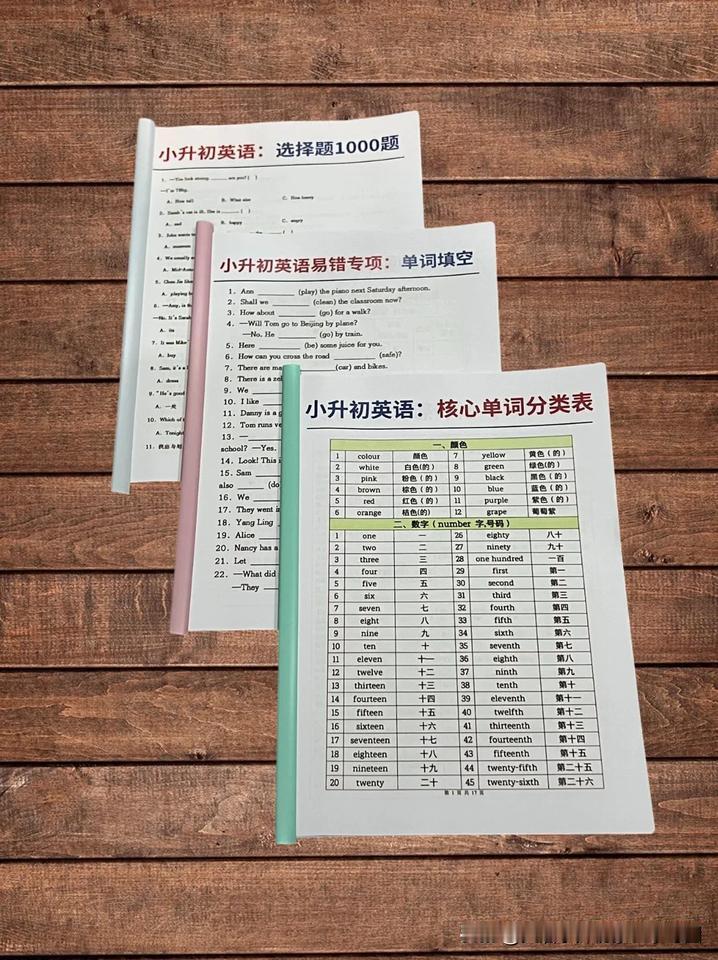 小升初英语：选择题1000题
1. —You look strong. ______ are you? ( )
—I'm 75kg.
A. How tall B. What size C. How heavy
2. Sarah's cat is ill. She is ______. ( )
A. sad B. happy C. angry
3. John wants to
A. museum
4. We usually
A. Mid-Autu
5. Chen Jie like
A. playing b
6. —Amy, is th
—No. It's Sarah
A. its
7. It was Mike
A. buy
8. Sam, it's
A. dress
9. "He's good
A. 一处
10. Which of
A. Tonight
小升初英语易错专项：单词填空
1. Ann ________ (play) the piano next Saturday afternoon.
2. Shall we ________ (clean) the classroom now?
3. How about ________ (go) for a walk?
4. —Will Tom go to Beijing by plane?
—No. He ________ (go) by train.
5. Here ________ (be) some juice for you.
6. How can you cross the road ________ (safe)?
7. There are ma (car) and bikes.
8. There is a ze
9. We ____
10. I like ____
11. Danny is a g
12. Tom runs ve
13. —____
school? —Yes.
14. Look! This i
15. Sam ____
also ____ (do
16. We ____
17. They went i
18. Yang Ling ____
19. Alice ____
20. Nancy has a
21. Let ____
22. —What did
—They ____
小升初英语：核心单词分类表
一、颜色
1 colour 颜色 7 yellow 黄色（的）
2 white 白色(的) 8 green 绿色(的)
3 pink 粉色（的） 9 black 黑色（的）
4 brown 棕色（的） 10 blue 蓝色（的）
5 red 红色（的） 11 purple 紫色（的）
6 orange 桔色(的) 12 grape 葡萄紫
二、数字（number 字,号码）
1 one 一 26 eighty 八十
2 two 二 27 ninety 九十
3 three 三 28 one hundred 一百
4 four 四 29 first 第一
5 five 五 30 second 第二
6 six 六 31 third 第三
7 seven 七 32 fourth 第四
8 eight 八 33 fifth 第五
9 nine 九 34 sixth 第六
10 ten 十 35 seventh 第七
11 eleven 十一 36 eighth 第八
12 twelve 十二 37 ninth 第九
13 thirteen 十三 38 tenth 第十
14 fourteen 十四 39 eleventh 第十一
15 fifteen 十五 40 twelfth 第十二
16 sixteen 十六 41 thirteenth 第十三
17 seventeen 十七 42 fourteenth 第十四
18 eighteen 十八 43 fifteenth 第十五
19 nineteen 十九 44 twenty-fifth 第二十五
20 twenty 二十 45 twenty-sixth 第二十六
第 1 页 共 17 页